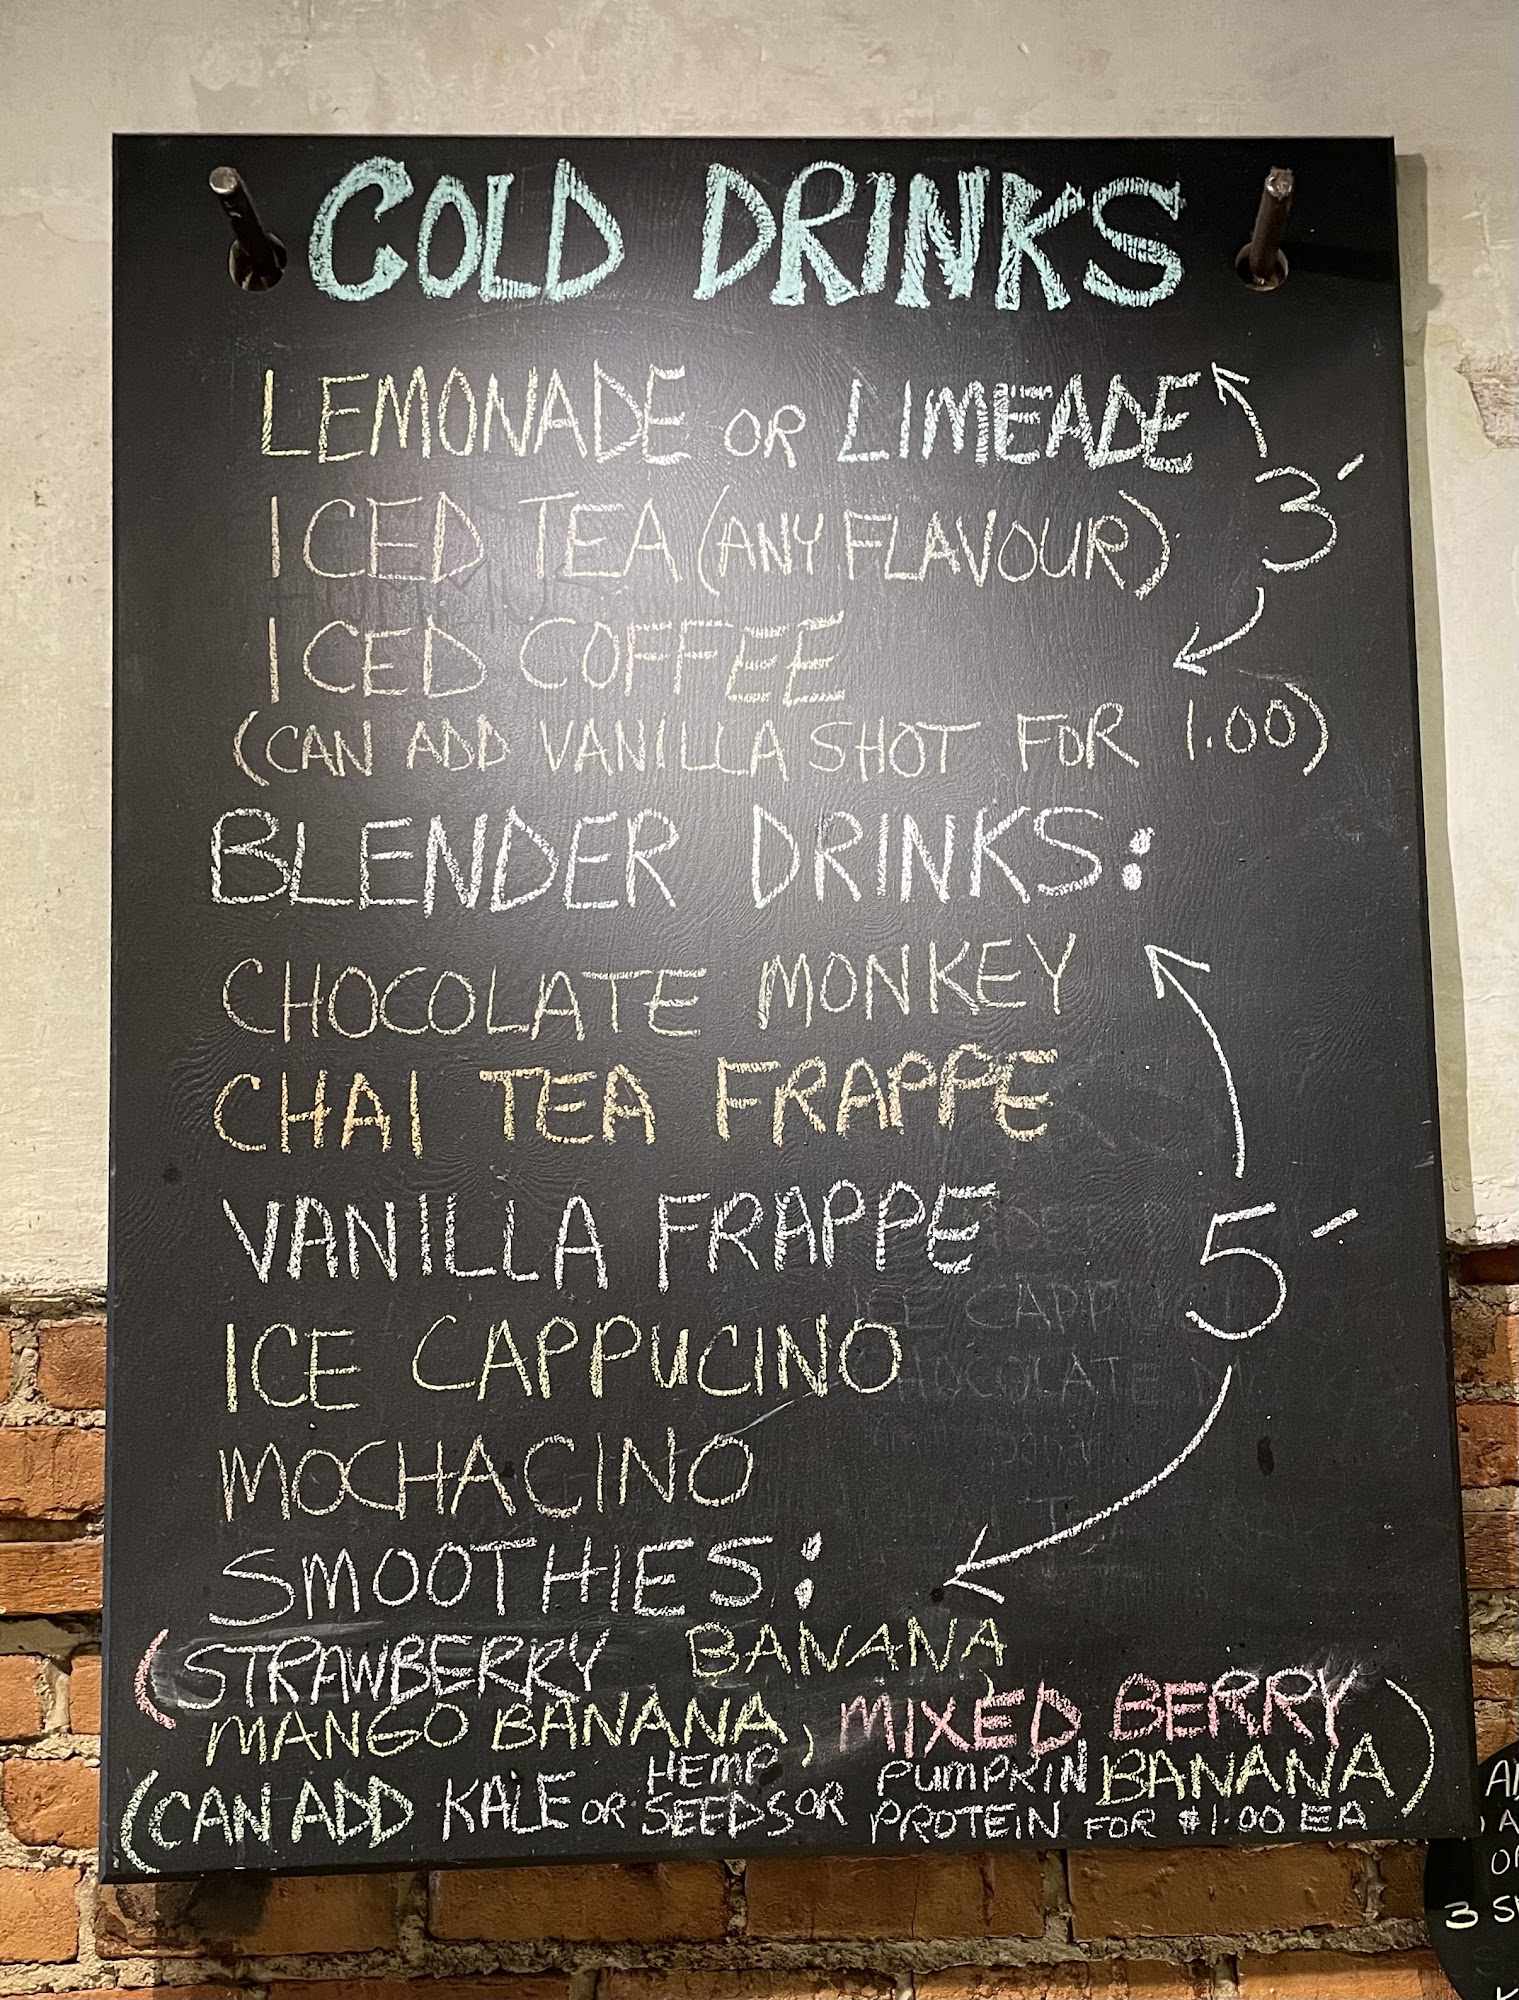 COLD DRINKS
LEMONADE OR LIMEADE
3-
ICED TEA (ANY FLAVOUR)
ICED COFFEE
(CAN ADD VANILLA SHOT FOR 1.00)
BLENDER DRINKS:
CHOCOLATE MONKEY
CHAI TEA FRAPPE
VANILLA FRAPPE
5-
ICE CAPPUCINO
MOCHACINO
SMOOTHIES:
(STRAWBERRY BANANA,
MANGO BANANA, MIXED BERRY
BANANA)
(CAN ADD KALE OR HEMP SEEDS OR PUMPKIN PROTEIN FOR $1.00 EA